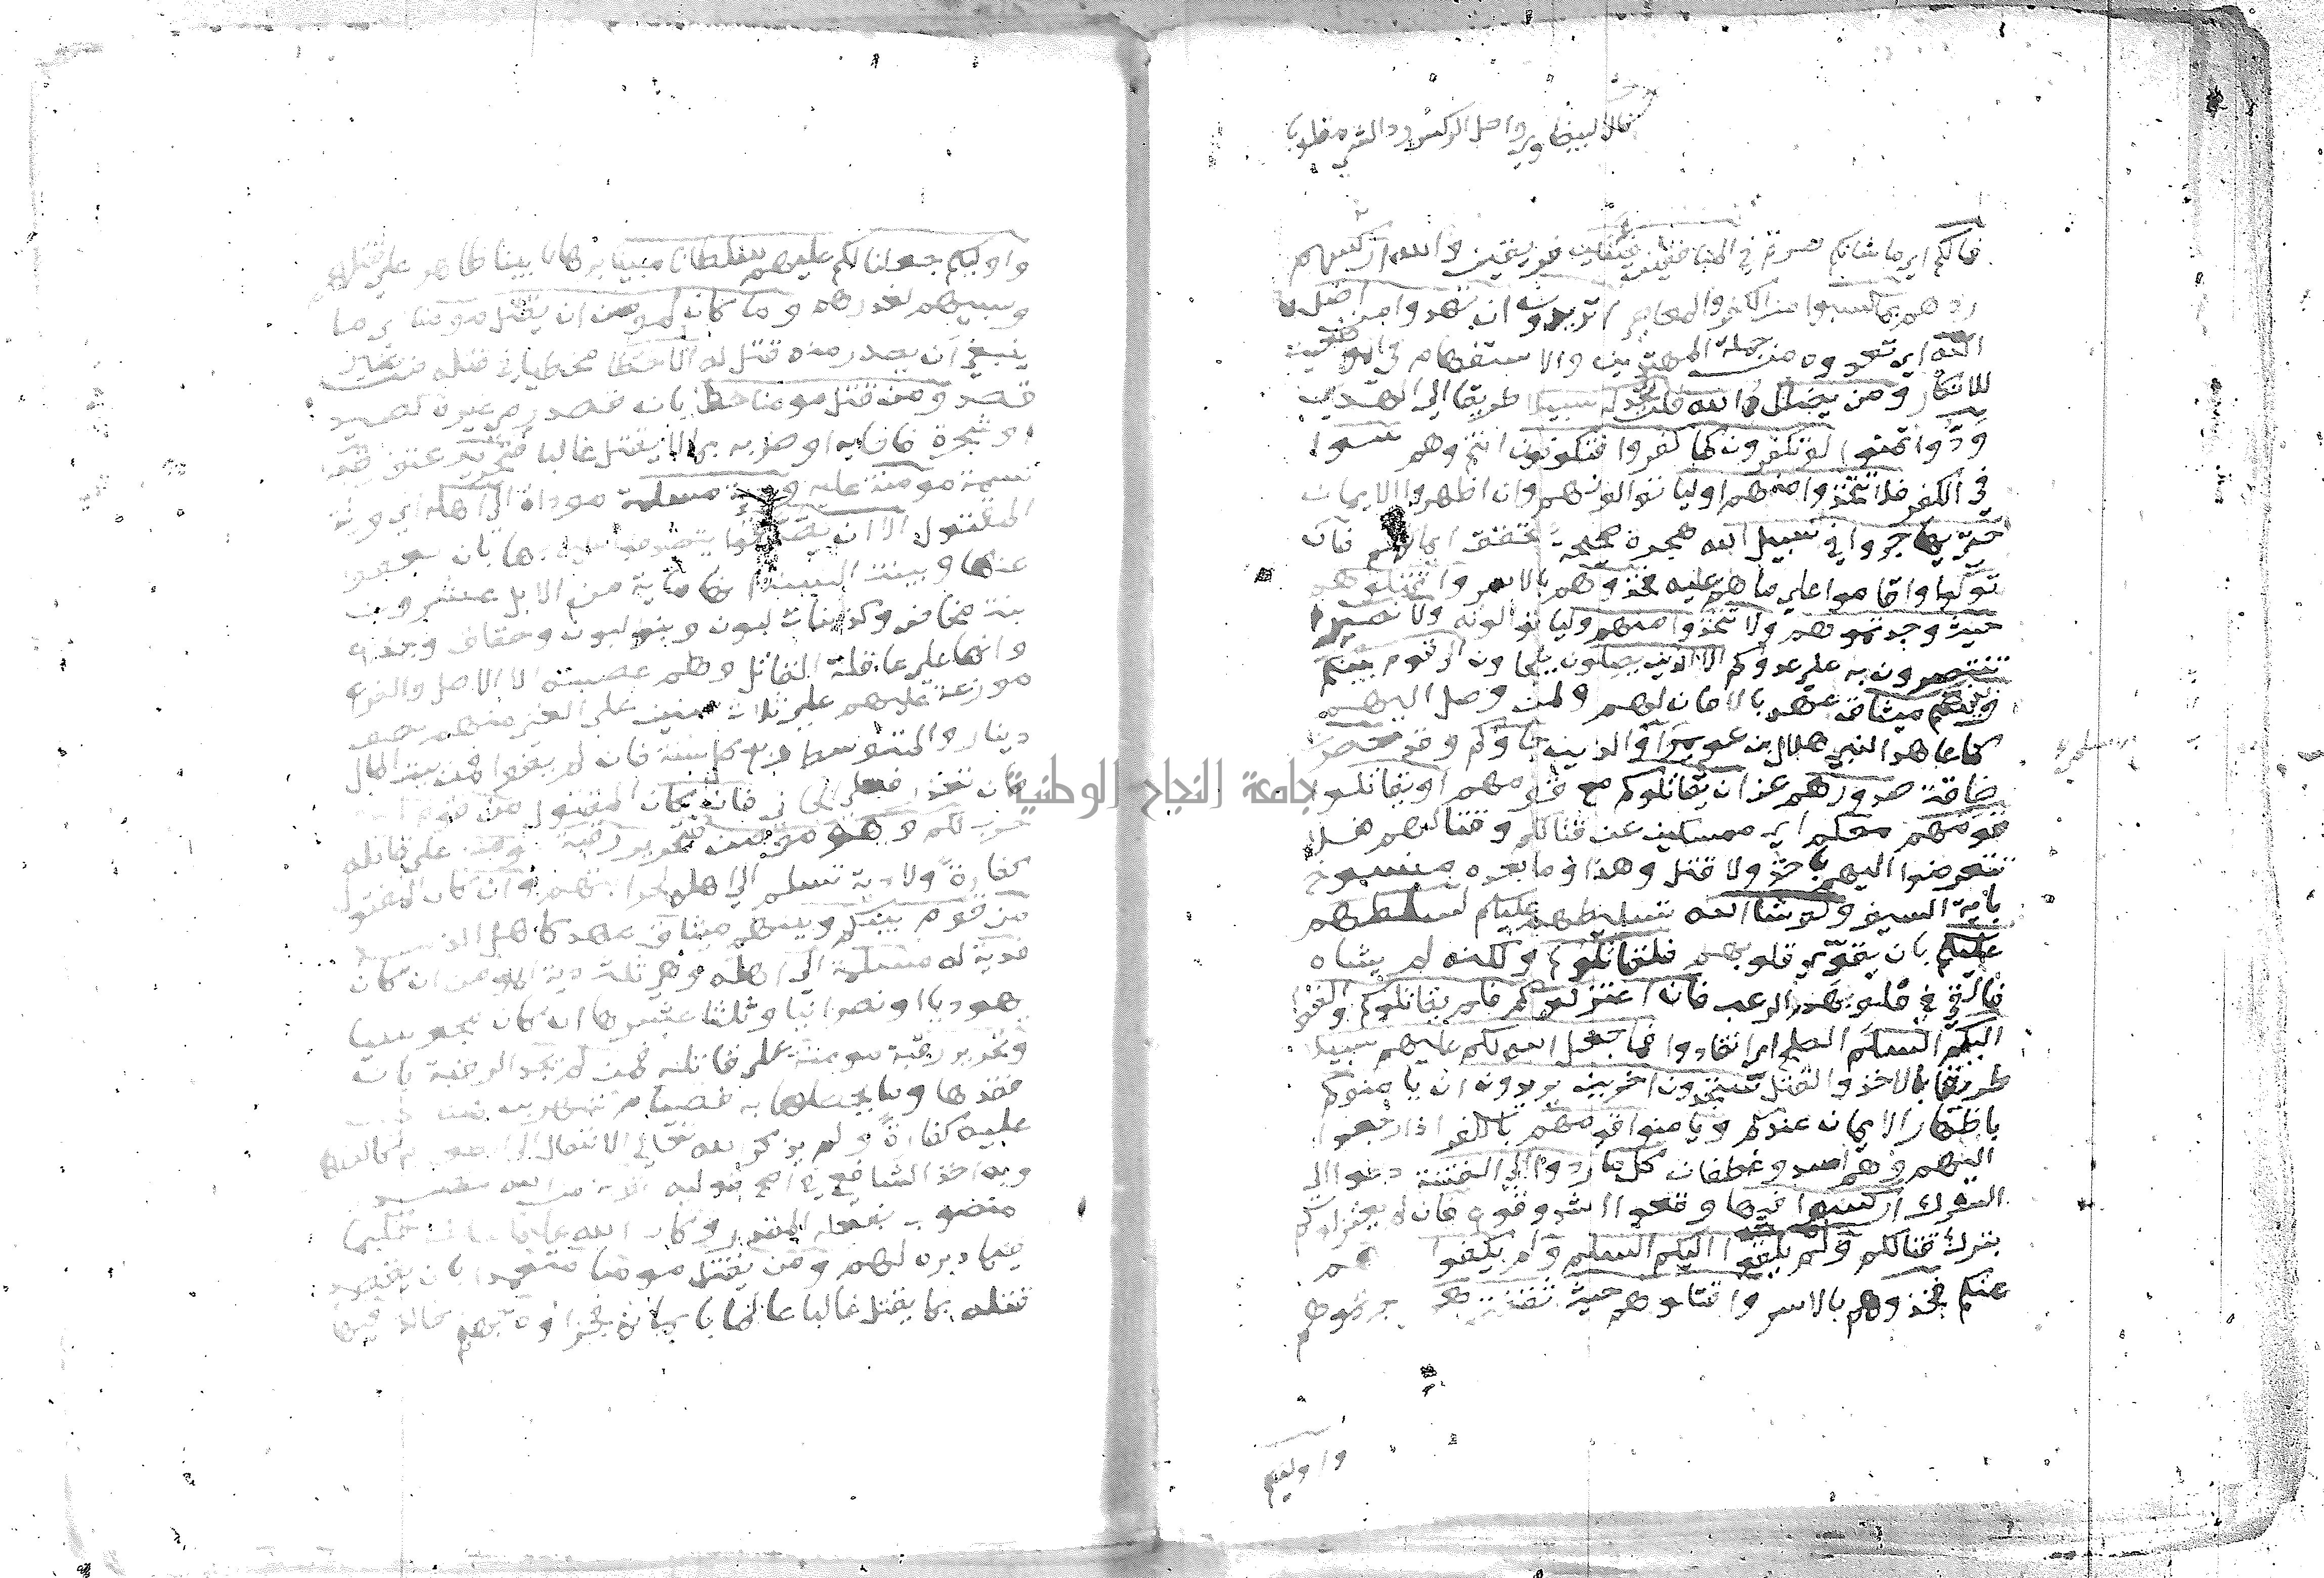 قال البيضاوي واصل الركس رد الشي مقلوبا
فمالكم اي ما شانكم صرتم في المنافقين فئتين فريقين والله اركسهم
ردهم بما كسبوا من الكفر والمعاصي اتريدون ان تهدوا من اضل
الله اي تعدوه من جملة المهتدين والاستفهام في الموضعين
للانكار ومن يضلل الله فلن تجد له سبيلا طريقا الى الهدى
ودوا تمنوا لو تكفرون كما كفروا فتكونون انتم وهم سوا
في الكفر فلا تتخذوا منهم اوليا توالونهم وان اظهروا الايمان
حتى يهاجروا في سبيل الله هجرة صحيحة تحقق ايمانهم فان
تولوا واقاموا على ما هم عليه فخذوهم بالاسر واقتلوهم
حيث وجدتموهم ولا تتخذوا منهم وليا توالونه ولا نصيرا
تنتصرون به على عدوكم الا الذين يصلون يلجاون الى قوم بينكم
وبينهم ميثاق عهد بالامان لهم ولمن وصل اليهم
كما عاهد النبي هلال بن عويمر او الذين جاوكم وقد حصرت
ضاقت صدورهم عن ان يقاتلوكم مع قومهم او يقاتلوا
قومهم معكم اي ممسكين عن قتالكم وقتالهم فلا
تتعرضوا اليهم باخذ ولا قتل وهذا وما بعده منسوخ
باية السيف ولو شا الله تسليطهم عليكم لسلطهم
عليكم بان يقوي قلوبهم فلقاتلوكم ولكنه لم يشاه
فالقى في قلوبهم الرعب فان اعتزلوكم فلم يقاتلوكم والقوا
اليكم السلم الصلح اي انقادوا فما جعل الله لكم عليهم سبيلا
طريقا بالاخذ والقتل ستجدون اخرين يريدون ان يامنوكم
باظهار الايمان عندكم ويامنوا قومهم بالكفر اذا رجعوا
اليهم وهم اسد وغطفان كل ما ردوا الى الفتنة دعوا الى
الشرك اركسوا فيها وقعوا اشد وقوع فان لم يعتزلوكم
بترك قتالكم ولم يلقوا اليكم السلم ولم يكفوا
عنكم فخذوهم بالاسر واقتلوهم حيث ثقفتموهم وجدتموهم
واوليكم
واوليكم جعلنا لكم عليهم سلطانا مبينا برهانا بينا ظاهرا على قتلهم
وسبيهم لغدرهم وما كان لمومن ان يقتل مومنا اي ما
ينبغي ان يصدر منه قتل له الا خطا مخطيا في قتله من غير
قصد ومن قتل مومنا خطا بان قصد رمي غيره كصيد
او شجرة فاصابه او ضربه بما لا يقتل غالبا فتحرير عتق رقبة
نسمة مومنة عليه ودية مسلمة موداة الى اهله اي ورثة
المقتول الا ان يصدقوا يتصدقوا عليه بها بان يعفوا
عنها وبينت السنة انها ماية من الابل عشرون
بنت مخاض وكذا بنات لبون وبنو لبون وحقاق وجذاع
وانها على عاقلة القاتل وهم عصبته الا الاصل والفرع
موزعة عليهم على ثلاث سنين على الغني منهم نصف
دينار والمتوسط ربع كل سنة فان لم يفوا فمن بيت المال
فان تعذر فعلى الجاني فان كان المقتول من قوم
عدو لكم وهو مومن فتحرير رقبة مومنة على قاتله
كفارة ولا دية تسلم الى اهله لحرابتهم وان كان المقتول
من قوم بينكم وبينهم ميثاق عهد كاهل الذمة
فدية له مسلمة الى اهله وهي ثلث دية المومن ان كان
يهوديا او نصرانيا وثلثا عشرها ان كان مجوسيا
وتحرير رقبة مومنة على قاتله فمن لم يجد الرقبة بان
فقدها وما يحصلها به فصيام شهرين
عليه كفارة ولم يذكر الله تعالى الانتقال الى الطعام كالظهار
وبه اخذ الشافعي في اصح قوليه توبة من الله مصدر
منصوب بفعله المقدر وكان الله عليما حكيما
فيما دبره لهم ومن يقتل مومنا متعمدا بان يقصد
قتله بما يقتل غالبا عالما بايمانه فجزاوه جهنم خالدا فيها
جامعة النجاح الوطنية